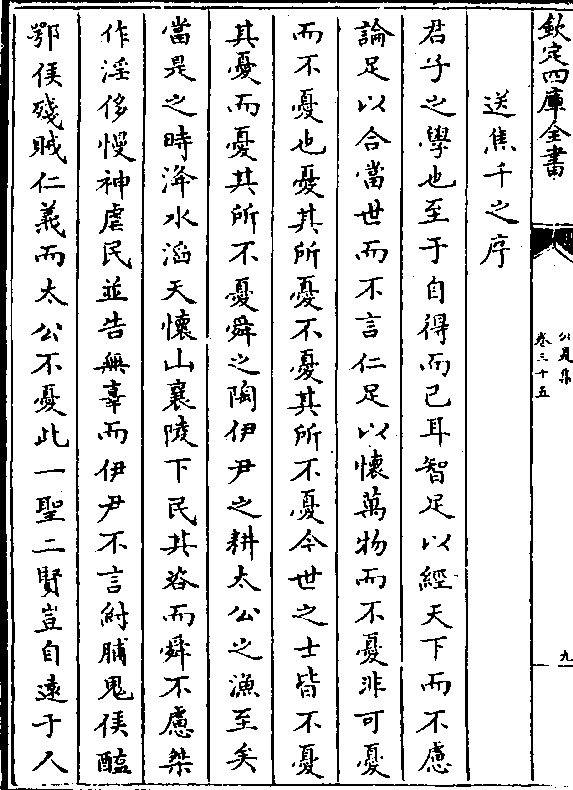 欽定四庫全書
公是集
卷三十五
九
送焦千之序
君子之學也至于自得而已耳智足以經天下而不慮
論足以合當世而不言仁足以懷萬物而不憂非可憂
而不憂也憂其所憂不憂其所不憂今世之士皆不憂
其憂而憂其所不憂舜之陶伊尹之耕太公之漁至矣
當是之時洚水滔天懷山襄陵下民其咨而舜不慮桀
作淫侈慢神虐民並告無辜而伊尹不言紂脯鬼侯醢
鄂侯殘賊仁義而太公不憂此一聖二賢豈自遠于人